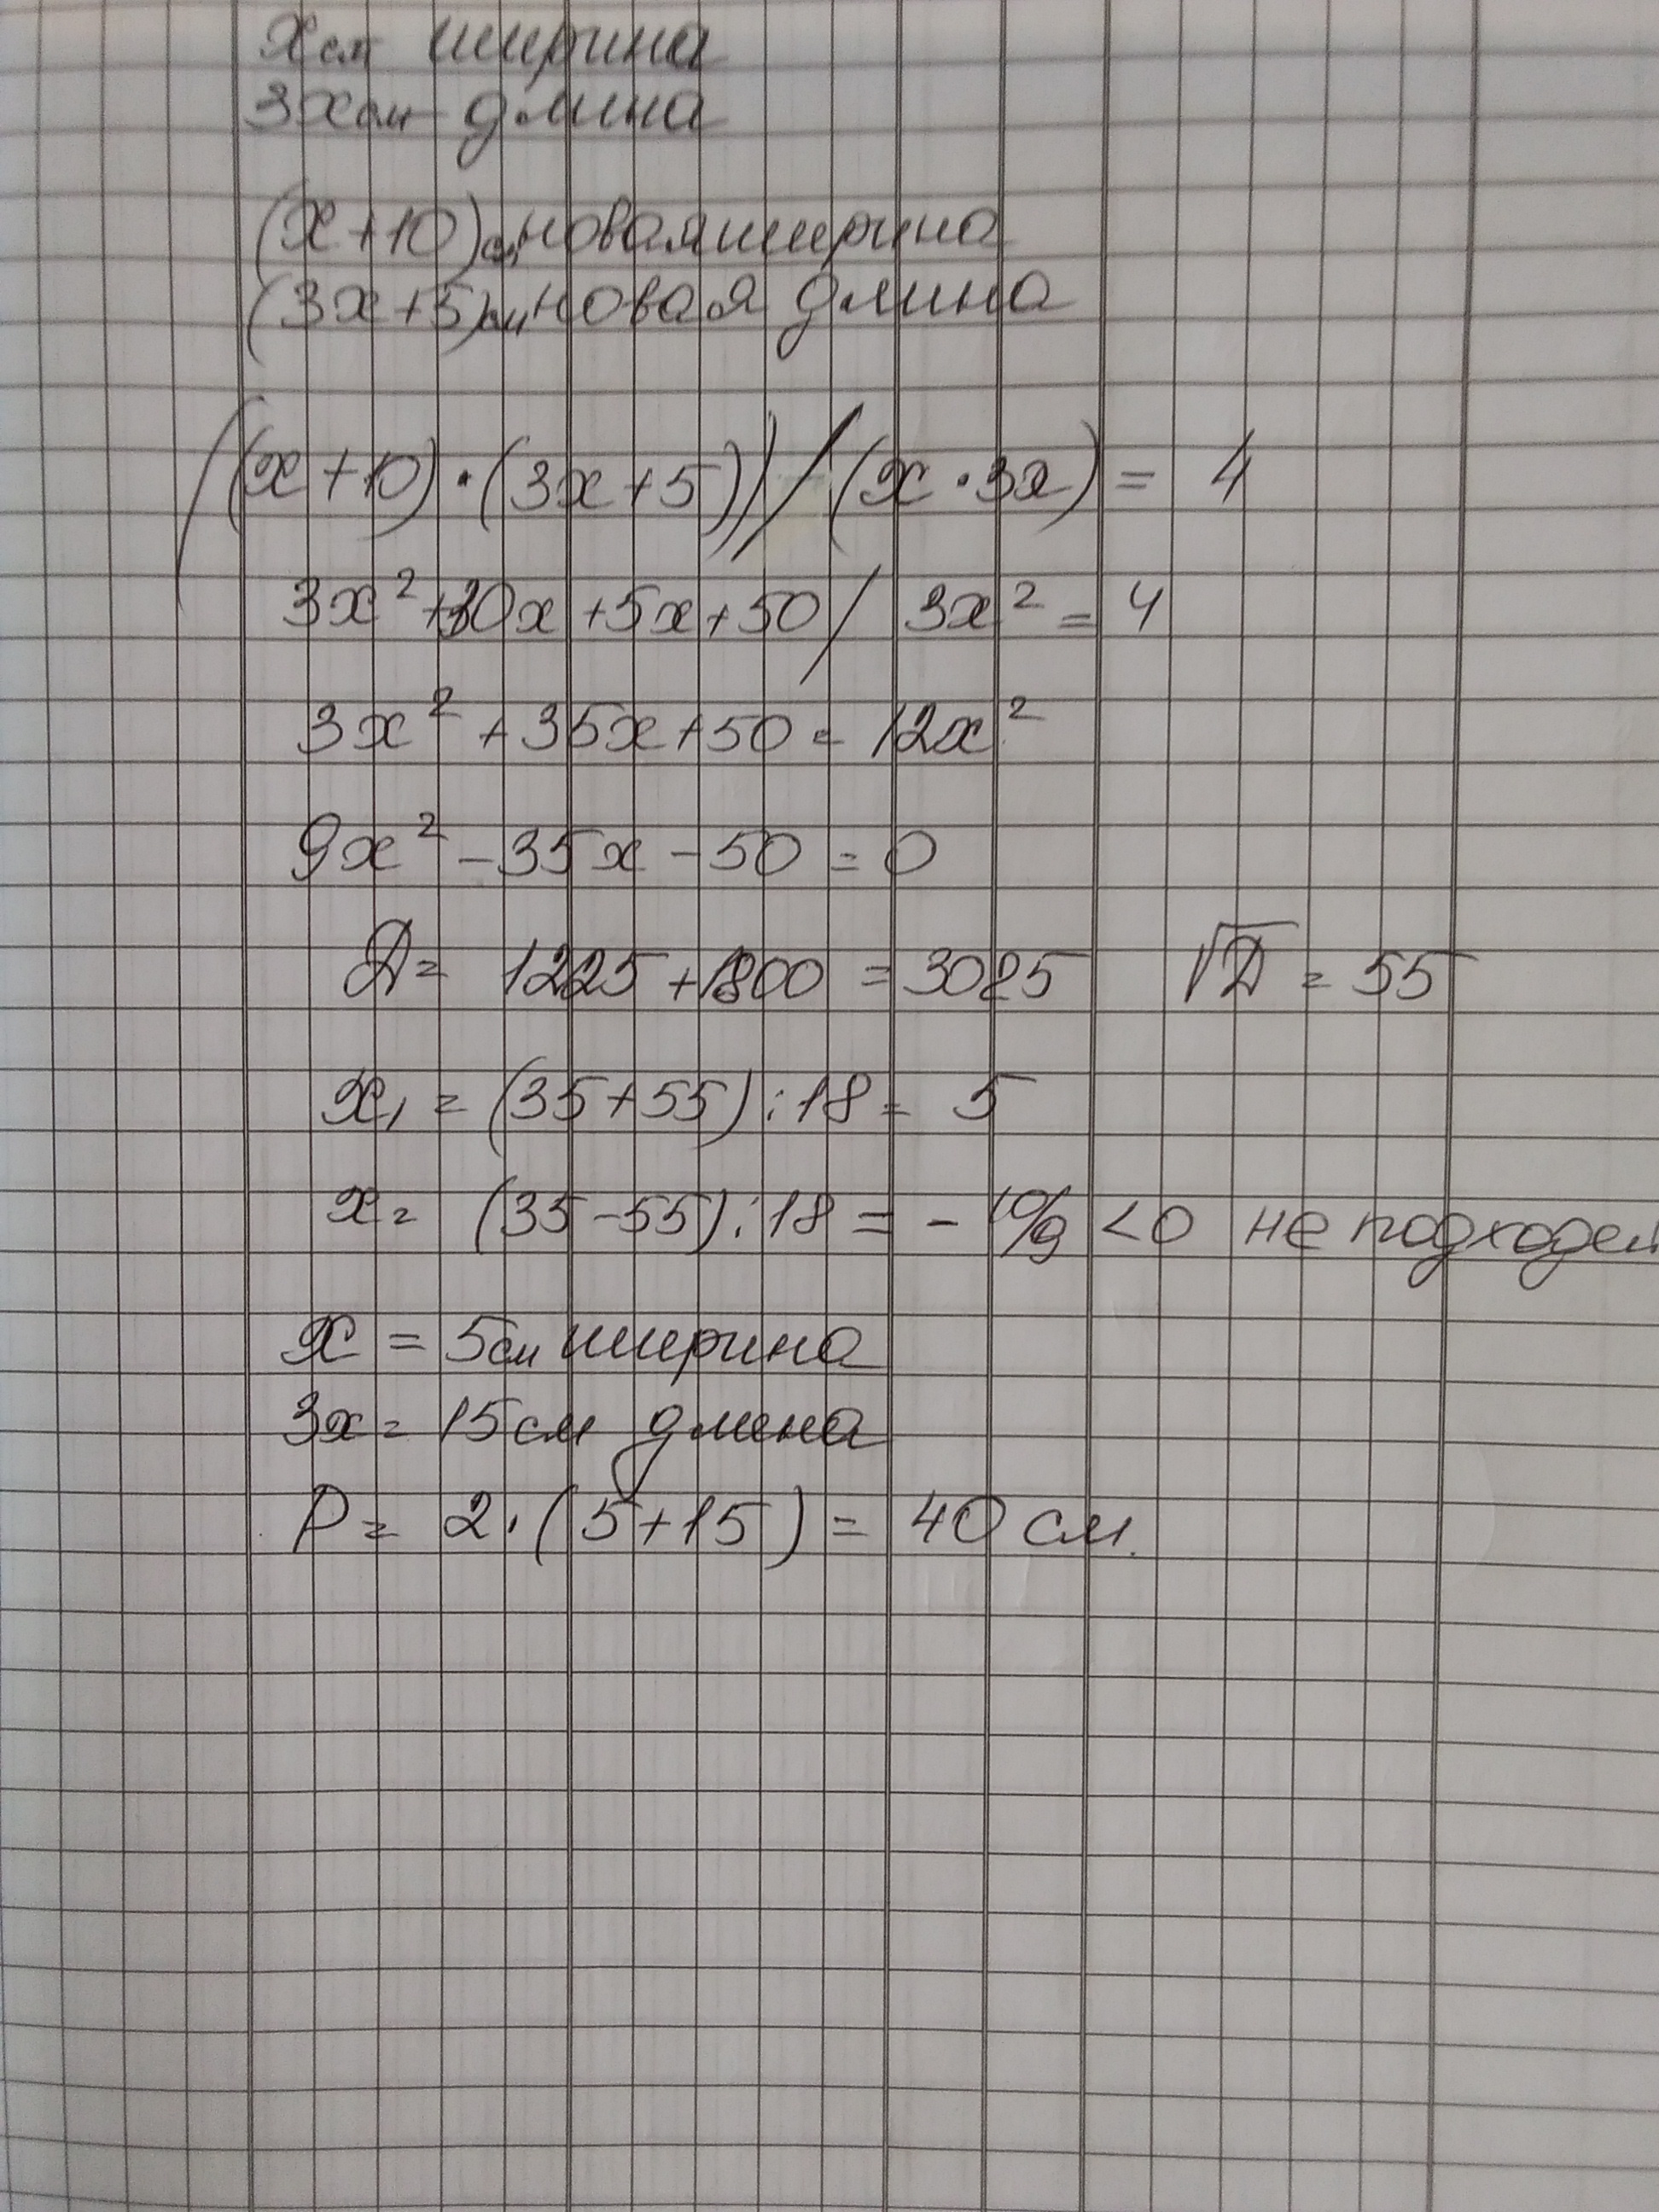 х см ширина
3х см длина
(х+10) см новая ширина
(3х+5) см новая длина
((х+10)·(3х+5))/(х·3х) = 4
3х²+30х+5х+50/3х² = 4
3х²+35х+50 = 12х²
9х²-35х-50 = 0
Д = 1225+1800 = 3025 √Д = 55
х₁ = (35+55):18 = 5
х₂ (35-55):18 = -10/9 <0 не подходит
х = 5 см ширина
3х = 15 см длина
Р = 2·(5+15) = 40 см.